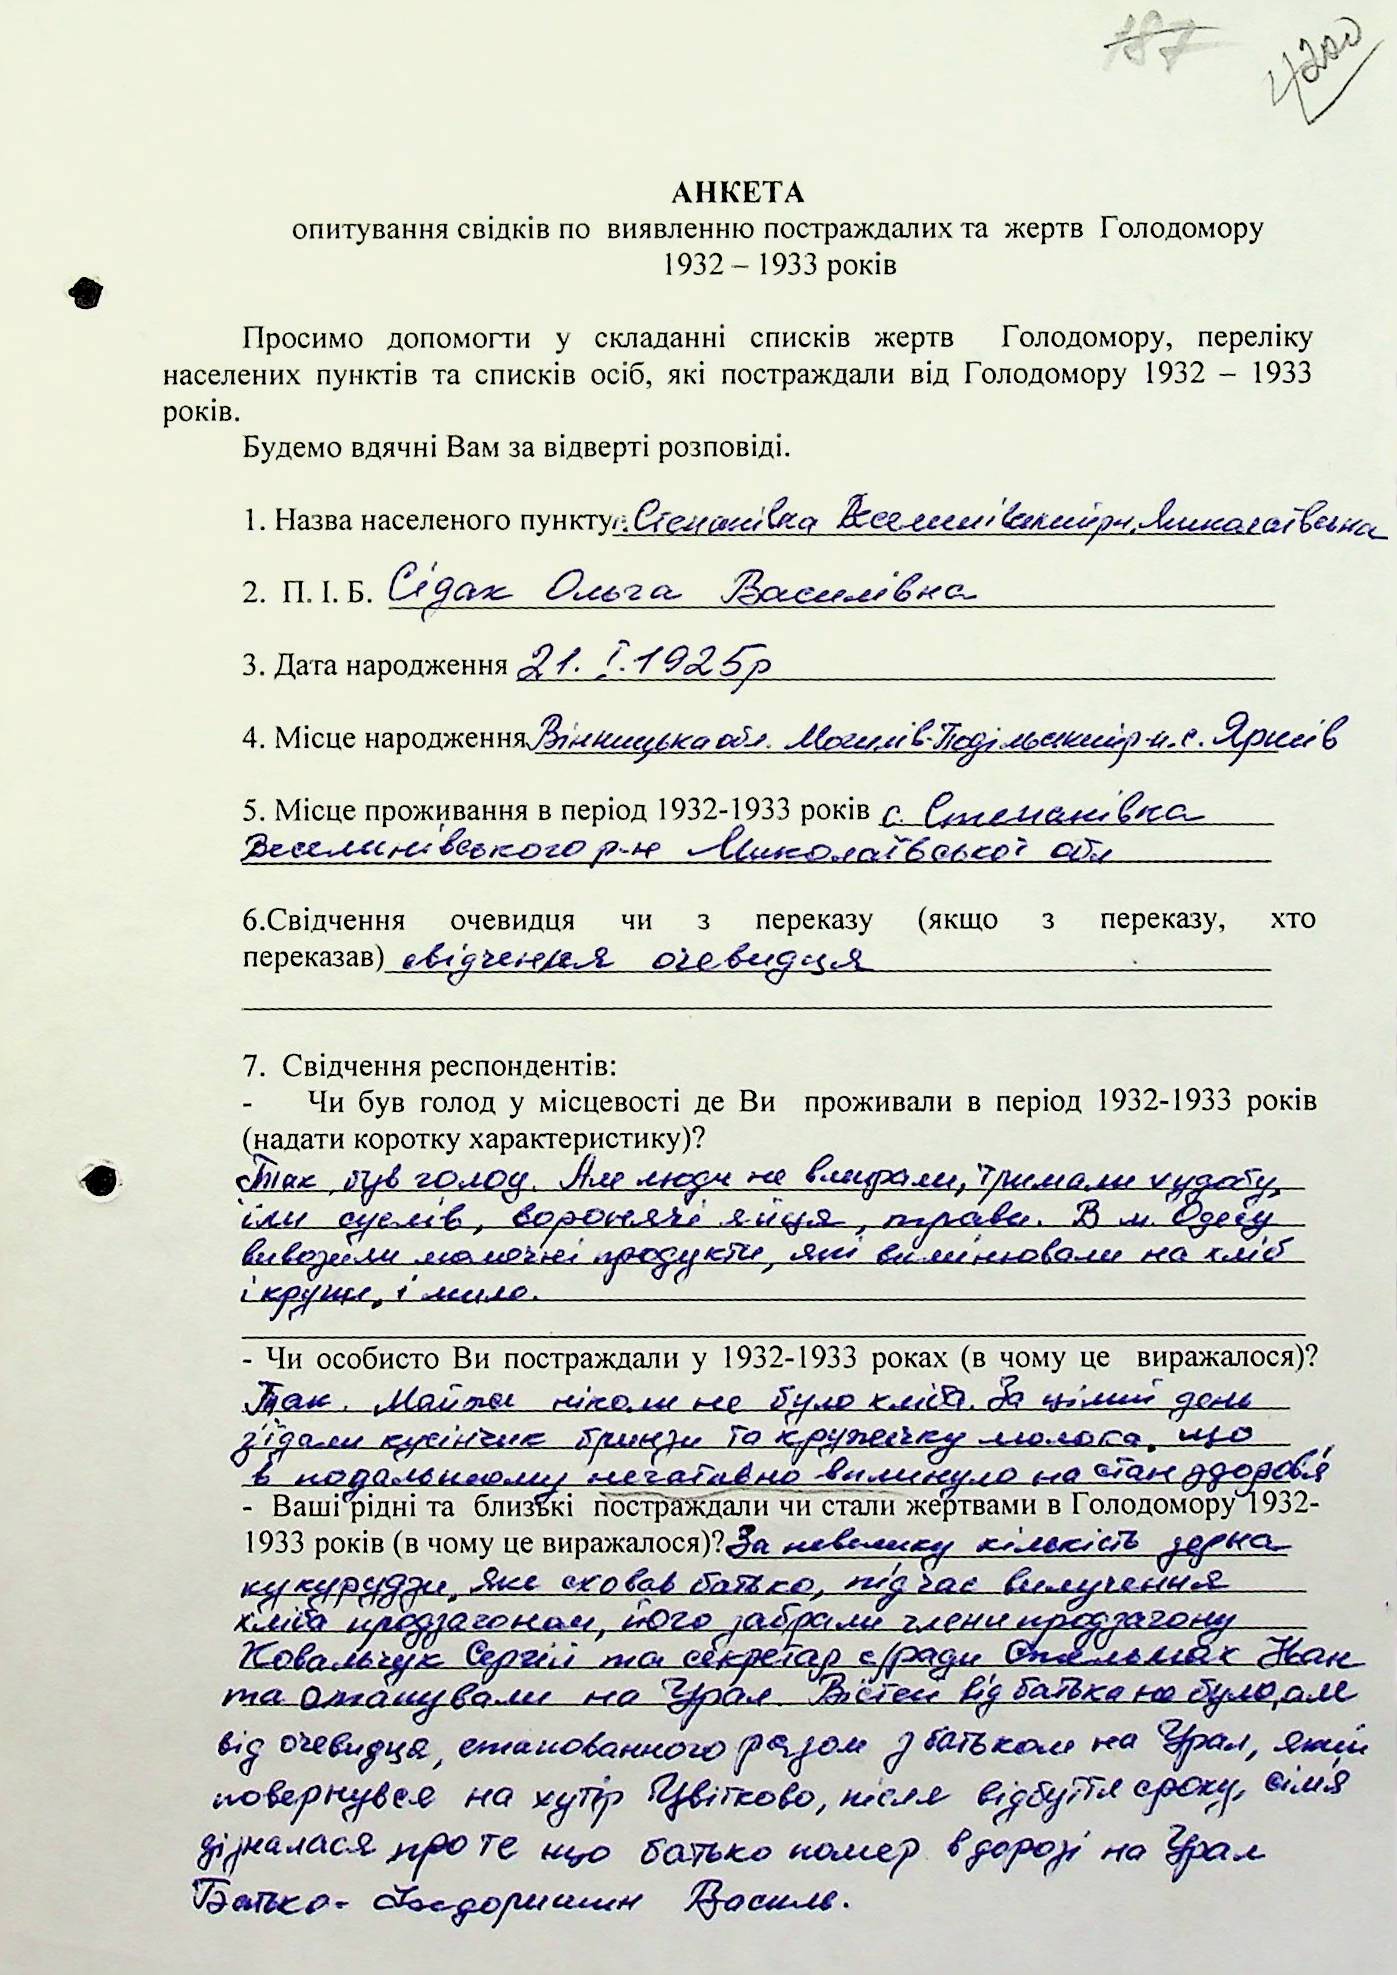 187
4200
АНКЕТА
опитування свідків по виявленню постраждалих та жертв Голодомору
1932 – 1933 років
Просимо допомогти у складанні списків жертв Голодомору, переліку
населених пунктів та списків осіб, які постраждали від Голодомору 1932 – 1933
років.
Будемо вдячні Вам за відверті розповіді.
1. Назва населеного пункту с. Степанівка Веселинівський р-н, Миколаївська
2. П. І. Б. Сідак Ольга Василівна
3. Дата народження 21. I. 1925р
4. Місце народження Вінницька обл. Могилів-Подільський р-н. с.
5. Місце проживання в період 1932-1933 років с. Степанівка
Веселинівського р-н Миколаївської обл
6.Свідчення очевидця чи з переказу (якщо з переказу, хто
переказав) свідчення очевидця
7. Свідчення респондентів:
- Чи був голод у місцевості де Ви проживали в період 1932-1933 років
(надати коротку характеристику)?
Так, був голод. Але люди не вмирали, тримали худобу,
їли суслів, воронячі яйця, трави. В м. Одесу
вивозили молочні продукти, які вимінювали на хліб
і крупи, і мило.
- Чи особисто Ви постраждали у 1932-1933 роках (в чому це виражалося)?
Так. Майже ніколи не було хліба. За цілий день
з'їдали кусінчик бринзи та кружечку молока, що
в подальшому негативно вплинуло на стан здоров'я
- Ваші рідні та близькі постраждали чи стали жертвами в Голодомору 1932-
1933 років (в чому це виражалося)? За невелику кількість зерна
кукурудзи, яке сховав батько, під час вилучення
хліба продзагоном, його забрали члени продзагону
Ковальчук Сергій та секретар с/ради Стельмах Іван
та етапували на Урал. Вістей від батька не було, але
від очевидця, етапованного разом з батьком на Урал, який
повернувся на хутір Цвітково, після відбуття сроку, сім'я
дізналася про те що батько помер в дорозі на Урал
Батько - Василь.